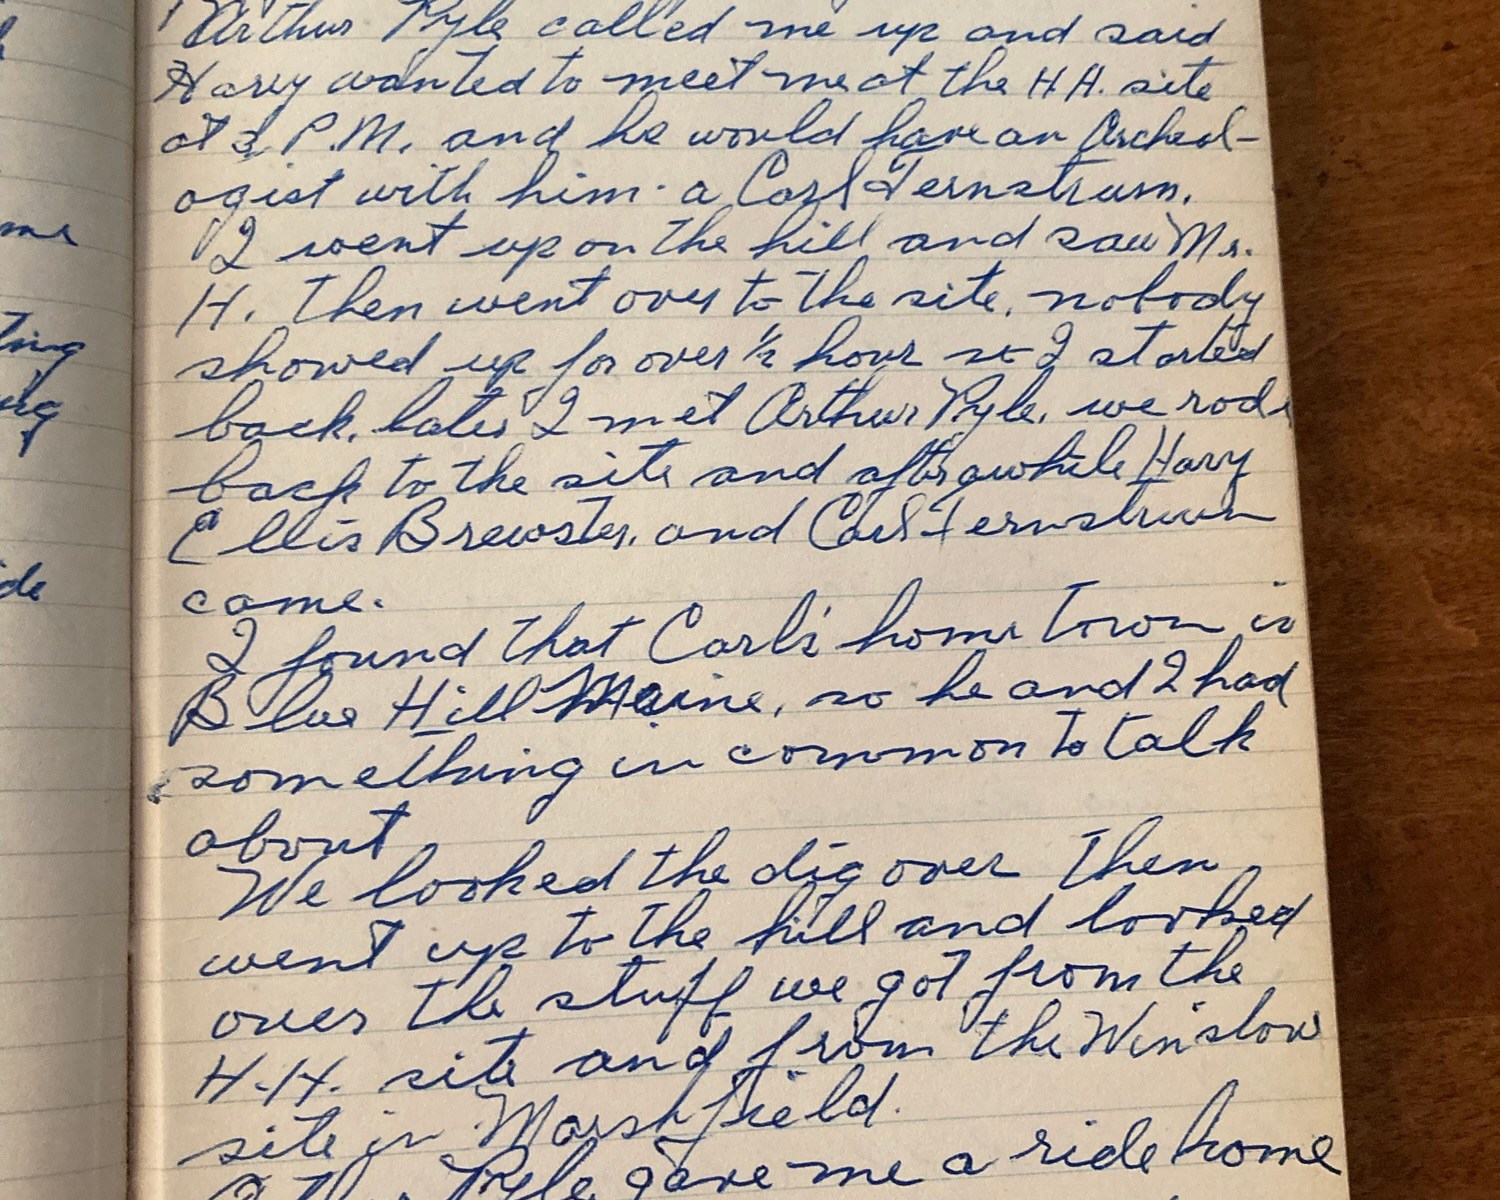 Arthur Pyle called me up and said
Harry wanted to meet me at the H H. site
at 2 P.M. and he would have an Archeol-
ogist with him. a Carl Fernstrum.
I went up on the hill and saw Mr.
H. Then went over to the site, nobody
showed up for over ½ hour so I started
back, later I met Arthur Pyle, we rode
back to the site and after awhile Harry
Ellis Brewster, and Carl Fernstrum
came.
I found that Carl's home town is
Blue Hill Maine, so he and I had
something in common to talk
about
We looked the dig over then
went up to the hill and looked
over the stuff we got from the
H.H. site and from the Winslow
site in Marshfield.
Pyle gave me a ride home
me
ting
ng
ide